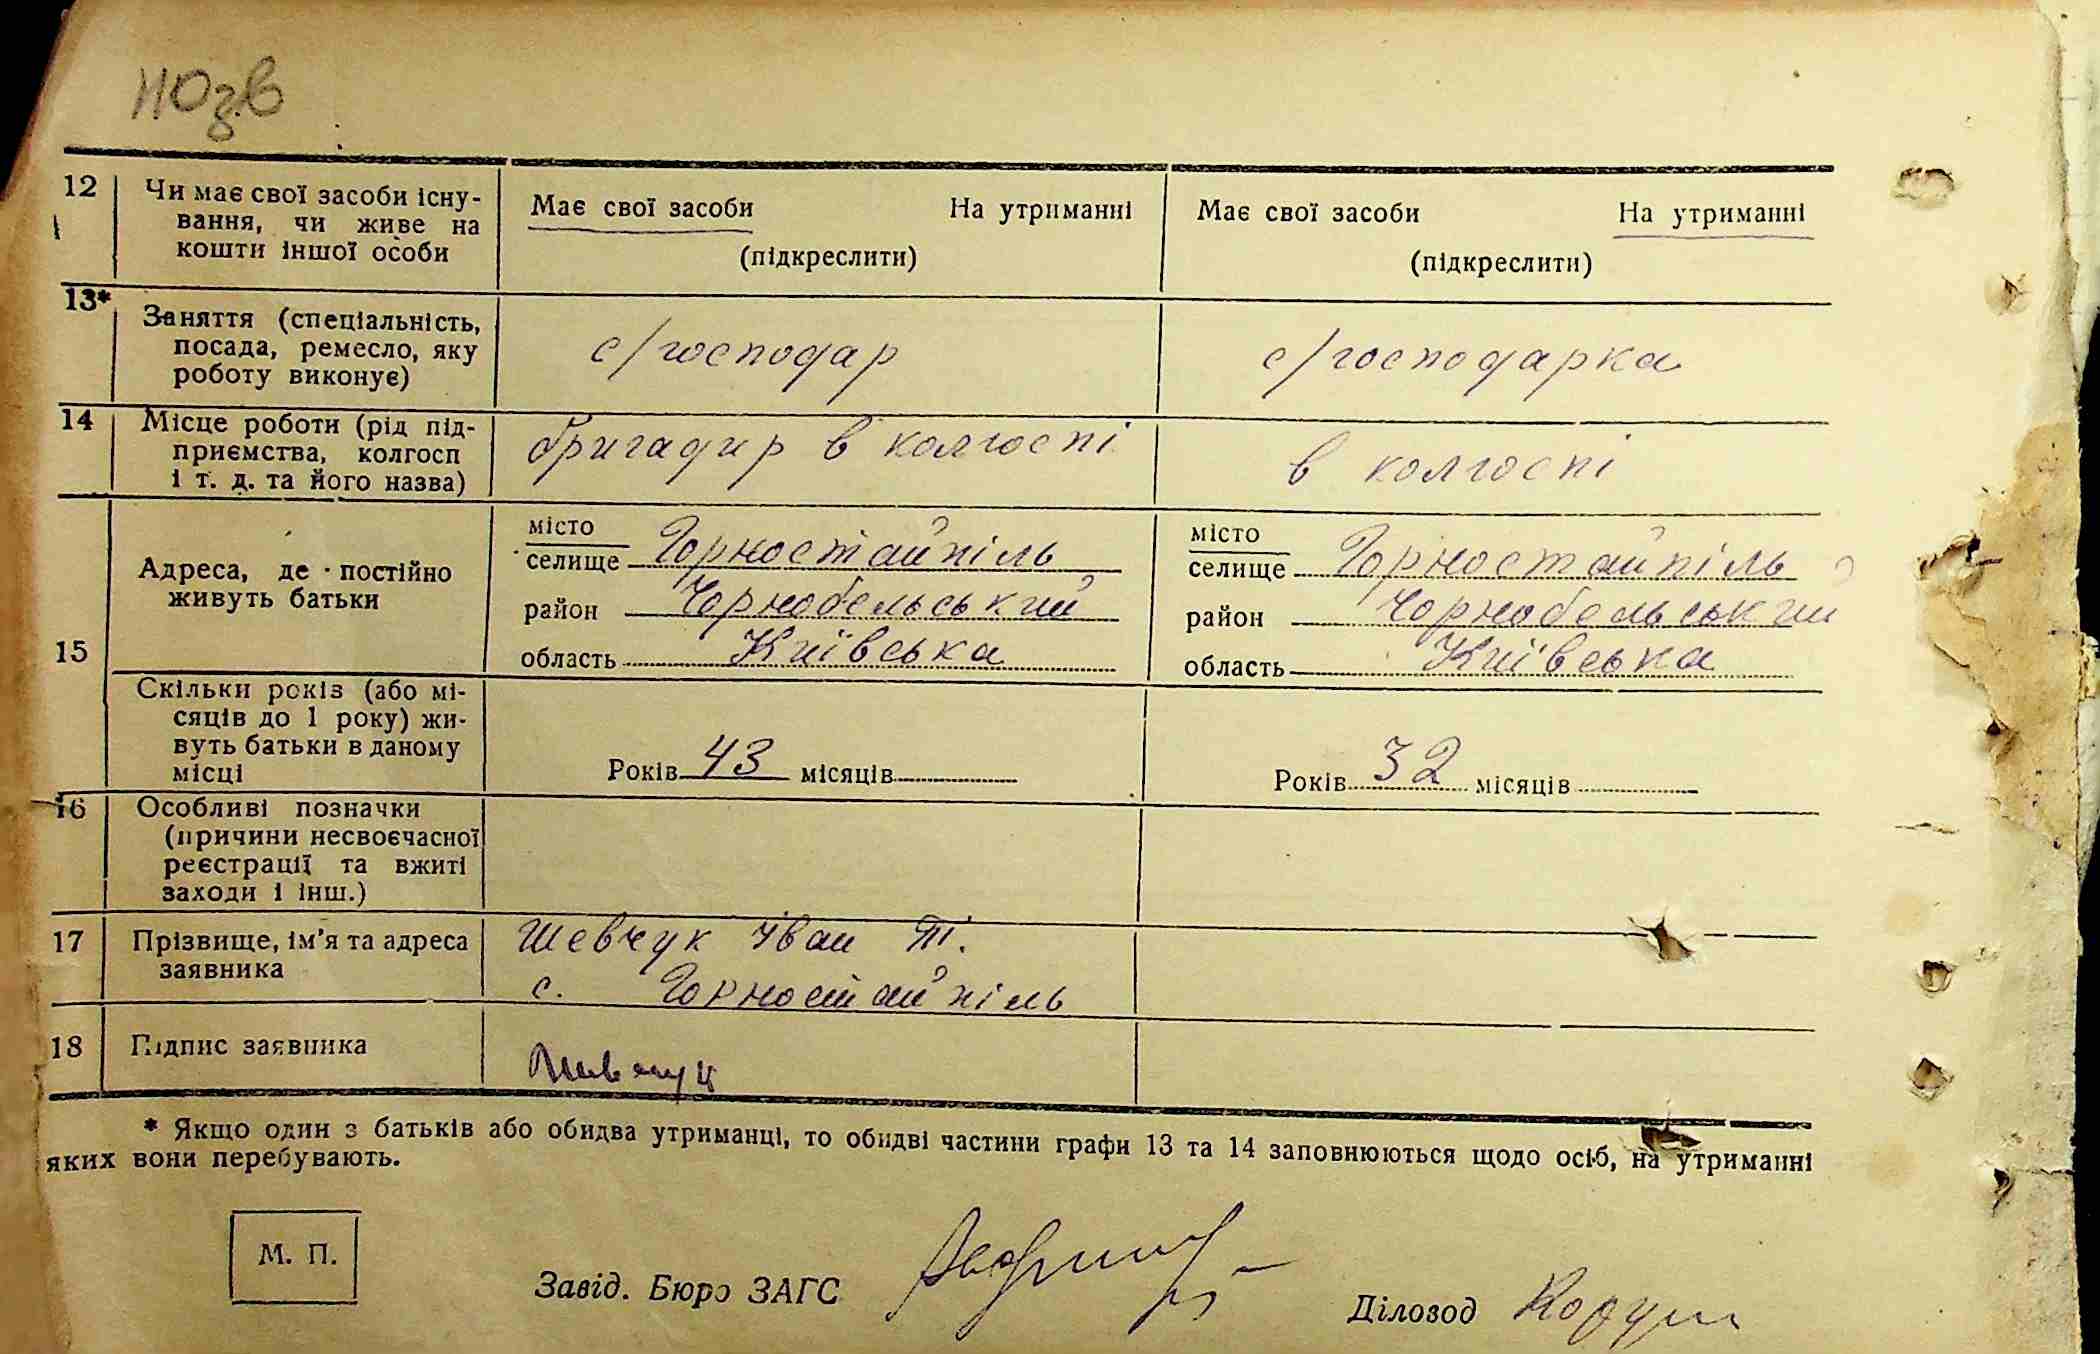 110зв
12 Чи має свої засоби існу-
вання, чи живе на
кошти іншої особи
Має свої засоби На утриманні
(підкреслити)
Має свої засоби На утриманні
(підкреслити)
13* Заняття (спеціальність,
посада, ремесло, яку
роботу виконує)
с/господар
с/господарка
14 Місце роботи (рід під-
приємства, колгосп
і т. д. та його назва)
бригадир в колгоспі
в колгоспі
15 Адреса, де постійно
живуть батьки
місто
селище Горностайпіль
район Чорнобельський
область Київська
місто
селище Горностайпіль
район Чорнобельський
область Київська
Скільки років (або мі-
сяців до 1 року) жи-
вуть батьки в даному
місці
Років 43 місяців
Років 32 місяців
16 Особливі позначки
(причини несвоєчасної
реєстрації та вжиті
заходи і інш.)
17 Прізвище, ім'я та адреса
заявника
Шевчук Іван Ті.
с. Горностайпіль
18 Підпис заявника
* Якщо один з батьків або обидва утриманці, то обидві частини графи 13 та 14 заповнюються щодо осіб, на утриманні
яких вони перебувають.
М. П.
Завід. Бюро ЗАГС
Діловод